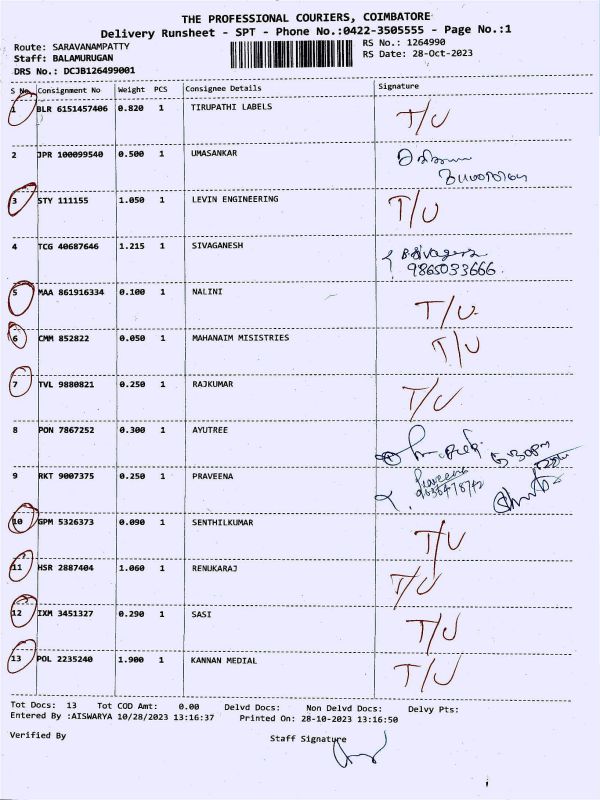 THE PROFESSIONAL COURIERS, COIMBATORE
Delivery Runsheet - SPT - Phone No.:0422-3505555 - Page No.:1
Route: SARAVANAMPATTY
RS No.: 1264990
Staff: BALAMURUGAN
RS Date: 28-Oct-2023
DRS No.: DCJB126499001
S No. Consignment No Weight PCS Consignee Details Signature
1 BLR 6151457406 0.820 1 TIRUPATHI LABELS T/U
2 JPR 100099540 0.500 1 UMASANKAR
3 STY 111155 1.050 1 LEVIN ENGINEERING T/U
4 TCG 40687646 1.215 1 SIVAGANESH
9865033666.
5 MAA 861916334 0.100 1 NALINI T/U
6 CMM 852822 0.050 1 MAHANAIM MISISTRIES T/U
7 TVL 9880821 0.250 1 RAJKUMAR T/U
8 PON 7867252 0.300 1 AYUTREE
9 RKT 9007375 0.250 1 PRAVEENA Praveena
10 GPM 5326373 0.090 1 SENTHILKUMAR T/U
11 HSR 2887404 1.060 1 RENUKARAJ T/U
12 IXM 3451327 0.290 1 SASI T/U
13 POL 2235240 1.900 1 KANNAN MEDIAL T/U
Tot Docs: 13 Tot COD Amt: 0.00 Delvd Docs: Non Delvd Docs: Delvy Pts:
Entered By :AISWARYA 10/28/2023 13:16:37 Printed On: 28-10-2023 13:16:50
Verified By Staff Signature